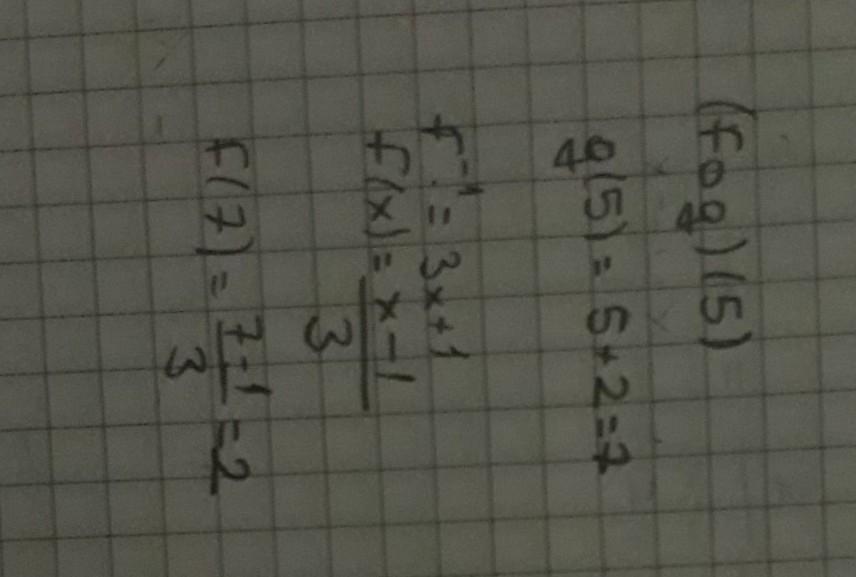 (fog)(5)
g(5) = 5+2=7
f⁻¹ = 3x+1
f(x) = x-1
3
f(7) = 7-1 = 2
3